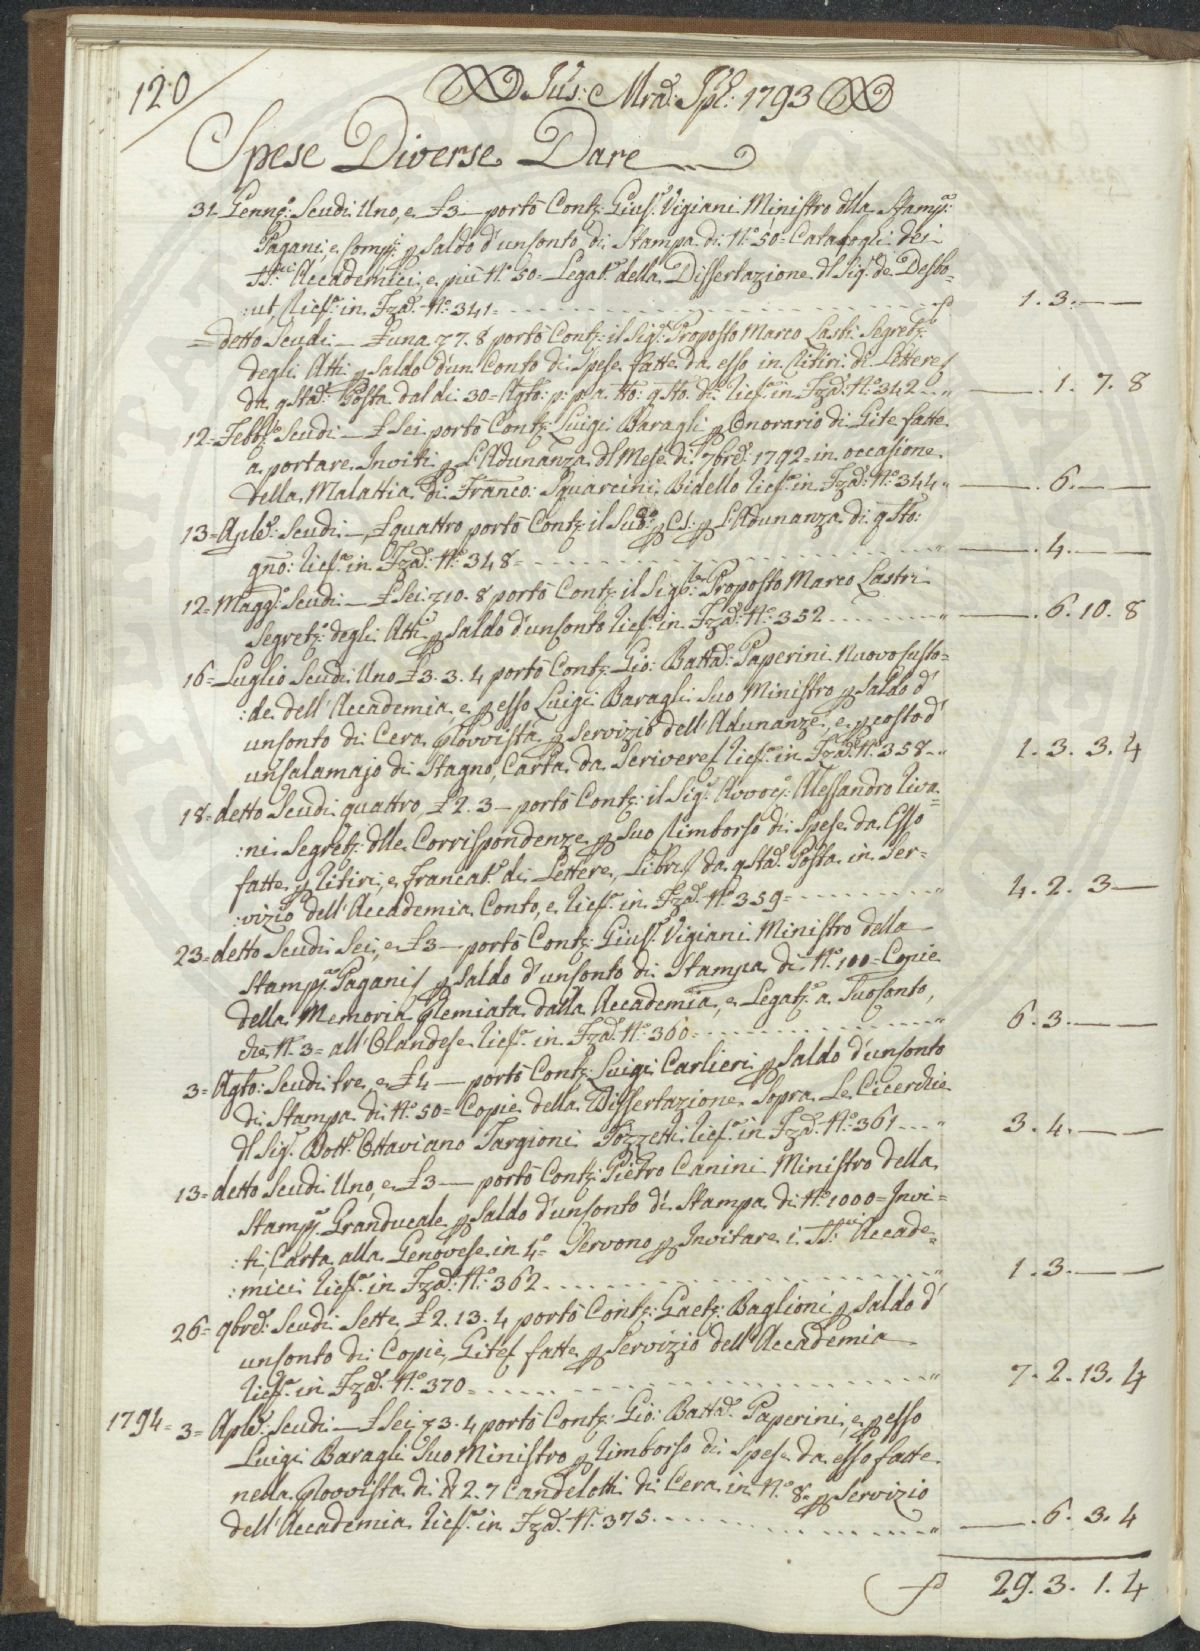 120
Jus: Mrā: Spl: 1793
Spese Diverse Dare
31 Genn:o Scudi Uno, e £3 — portò Contj: Gius:e Vigiani Ministro dlla Stamp:a
Pagani, e Comp:i p saldo d'un Conto di Stampa di N:o 50= Catagogli dei
SS:ri Accademici, e più N:o 50= Legat:e della Dissertazione dl Sig:r de Desbo=
:ut, Ricf:a in Fzā: N:o 341= 1. 3. —
=detto Scudi — £ una 7. 8 portò Contj: il Sig:r Proposto Marco Lastri Segret:o
degli Atti p saldo d'un Conto di Spese fatte da esso in Ritiri di Lettere
da qstā: Posta dal dì 30= Agto: p: p: a tto: qsto: dì Ricf:a in Fzā: N:o 342 — 1. 7. 8
12= Febb:o Scudi — £ Sei portò Contj: Luigi Baragli p Onorario di Gite fatte
a portare Inviti p L'Adunanza dl Mese di 7brē: 1792= in occasione
della Malattia di Franco: Squarcini Bidello Ricf:a in Fzā: N:o 344 — 6. —
13= Aplē: Scudi — £ quattro portò Contj: il Sud:o p C.S. p L'Adunanza di qsto:
gno: Ricf:a in Fzā: N:o 348= — 4. —
12= Magg:o Scudi — £ Sei 10. 8 portò Contj: il Sig:r Proposto Marco Lastri
Segret:o degli Atti p saldo d'un Conto Ricf:a in Fzā: N:o 352 — 6. 10. 8
16= Luglio Scudi Uno £ 3. 3. 4 portò Contj: Gio: Battā: Paperini Nuovo Custo=
:de dell'Accademia, e p esso Luigi Baragli Suo Ministro p saldo d'
un Conto di Cera provvista p Servizio dell'Adunanze, e p costo d'
un Calamajo di Stagno, Carta da Scrivere Ricf:a in Fzā: N:o 358 1. 3. 3. 4
18= detto Scudi quattro, £ 2. 3 — portò Contj: il Sig:r Avvoc:o Alessandro Riva=
:ni Segret:o dlle Corrispondenze p Suo Rimborso di Spese da Esso
fatte p Ritiri, e francat:e di Lettere, Libri da qstā: Posta in Ser=
:vizio dell'Accademia Conto, e Ricf:a in Fzā: N:o 359= 4. 2. 3 —
23= detto Scudi Sei, e £ 3 — portò Contj: Gius:e Vigiani Ministro della
Stamp:a Pagani p saldo d'un Conto di Stampa di N:o 100= Copie
della Memoria premiata dalla Accademia, e Legat:e a Suo Conto,
che N:o 3= all'Olandese Ricf:a in Fzā: N:o 360= 6. 3. —
3= Agto: Scudi tre, e £ 4 — portò Contj: Luigi Carlieri p saldo d'un Conto
di Stampa di N:o 50= Copie della Dissertazione Sopra Le Cicerchie
dl Sig:r Dott:e Ottaviano Targioni Tozzetti Ricf:a in Fzā: N:o 361 3. 4. —
13= detto Scudi Uno, e £ 3 — portò Contj: Pietro Canini Ministro della
Stamp:a Granducale p saldo d'un Conto di Stampa di N:o 1000= Invi=
:ti, Carta alla Genovese in 4:o Servono p Invitare i SS:ri Accade=
:mici Ricf:a in Fzā: N:o 362 1. 3. —
26= 9brē: Scudi Sette, £ 2. 13. 4 portò Contj: Gaet:o Baglioni p saldo d'
un Conto di Copie, Gite fatte p Servizio dell'Accademia
Ricf:a in Fzā: N:o 370= 7. 2. 13. 4
1794= 3= Aplē: Scudi — £ Sei 3. 4 portò Contj: Gio: Battā: Paperini, e p esso
Luigi Baragli Suo Ministro p Rimborso di Spese da esso fatte
nella provvista di ℔ 2. 7 Candelotti di Cera in N:o 8= p Servizio
dell'Accademia Ricf:a in Fzā: N:o 375 — 6. 3. 4
29. 3. 1. 4